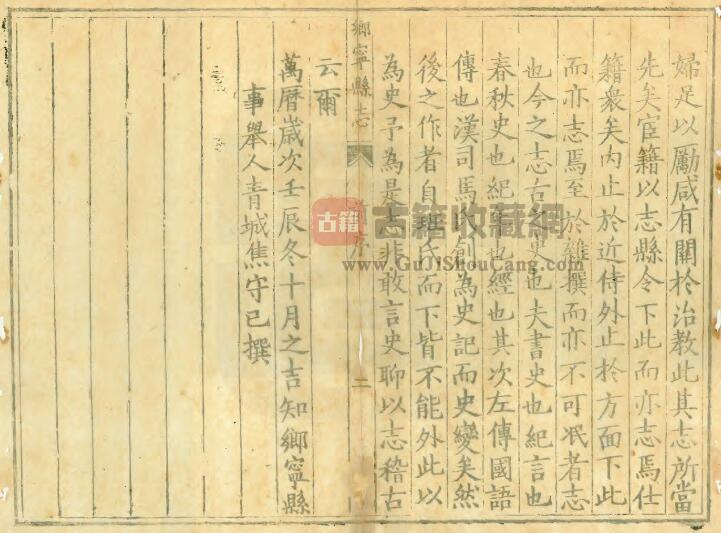 婦足以勵咸有關於治教此其志所當
先矣宦籍以志縣令下此而亦志焉仕
籍衆矣內止於近侍外止於方面下此
而亦志焉至於雜撰而亦不可泯者志
也今之志古之史也夫書史也紀言也
春秋史也紀事也經也其次左傳國語
傳也漢司馬氏創為史記而史變矣然
後之作者自班氏而下皆不能外此以
為史予為是志非敢言史聊以志稽古
鄉寧縣志
序
二
云爾
萬曆歲次壬辰冬十月之吉知鄉寧縣
事舉人青城焦守己撰
古籍
古籍收藏网
www.GuJiShouCang.com